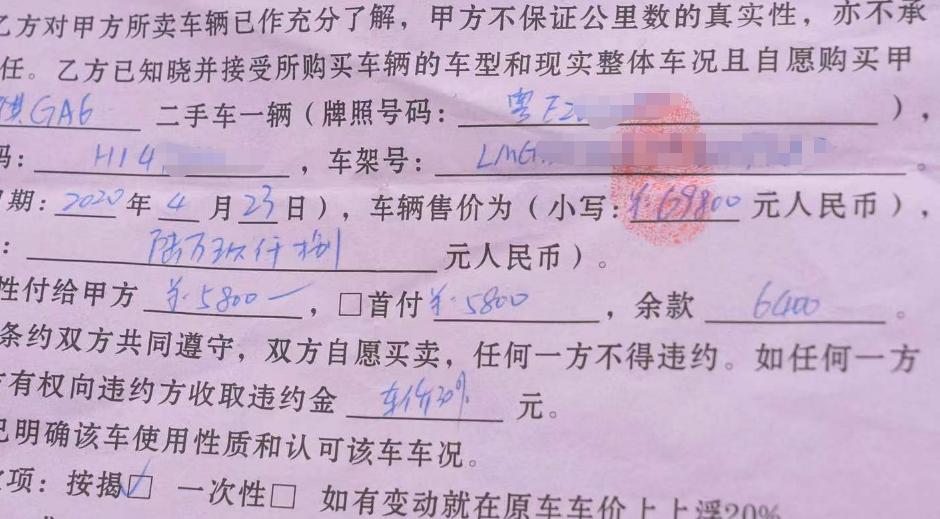 乙方对甲方所卖车辆已作充分了解，甲方不保证公里数的真实性，亦不承
任。乙方已知晓并接受所购买车辆的车型和现实整体车况且自愿购买甲
GA6 二手车一辆（牌照号码：粤E2 ），
码：H14 ，车架号：LMG 。
日期：2020年4月23日），车辆售价为（小写：¥:69800元人民币），
：陆万玖仟捌 元人民币）。
性付给甲方 ¥:5800一，□首付¥:5800，余款 6400。
条约双方共同遵守，双方自愿买卖，任何一方不得违约。如任何一方
有权向违约方收取违约金 车价30% 元。
已明确该车使用性质和认可该车车况。
项：按揭☑ 一次性□ 如有变动就在原车车价上上浮20%